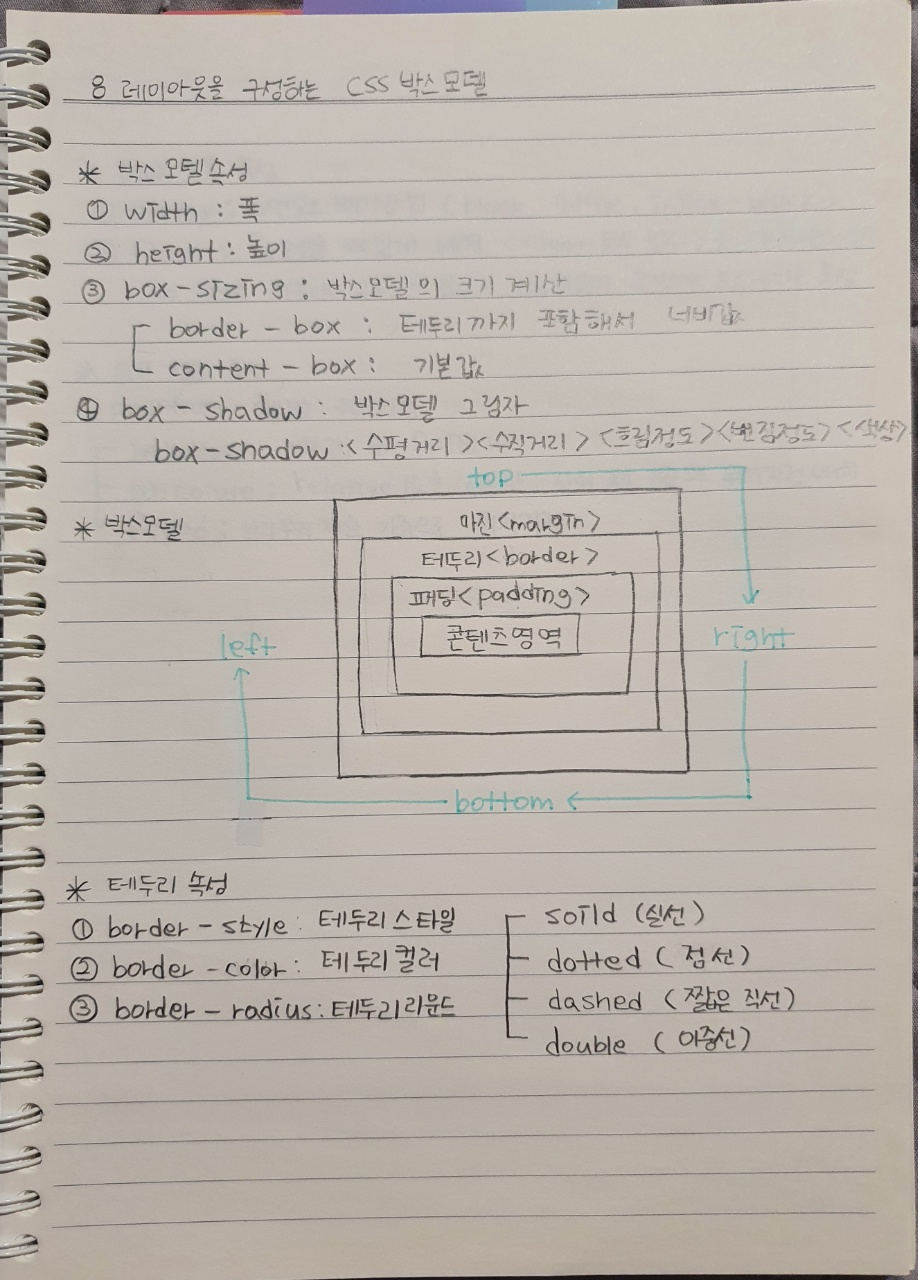 8 레이아웃을 구성하는 CSS 박스모델
* 박스모델속성
① width : 폭
② height : 높이
③ box-sizing : 박스모델의 크기 계산
border-box : 테두리까지 포함해서 너비값
content-box : 기본값
④ box-shadow : 박스모델 그림자
box-shadow:<수평거리><수직거리><흐림정도><번짐정도><색상>
top
* 박스모델
마진<margin>
테두리<border>
패딩<padding>
콘텐츠영역
left
right
bottom
* 테두리 속성
① border-style : 테두리스타일
solid (실선)
② border-color : 테두리컬러
dotted (점선)
③ border-radius : 테두리리운드
dashed (짧은 직선)
double (이중선)